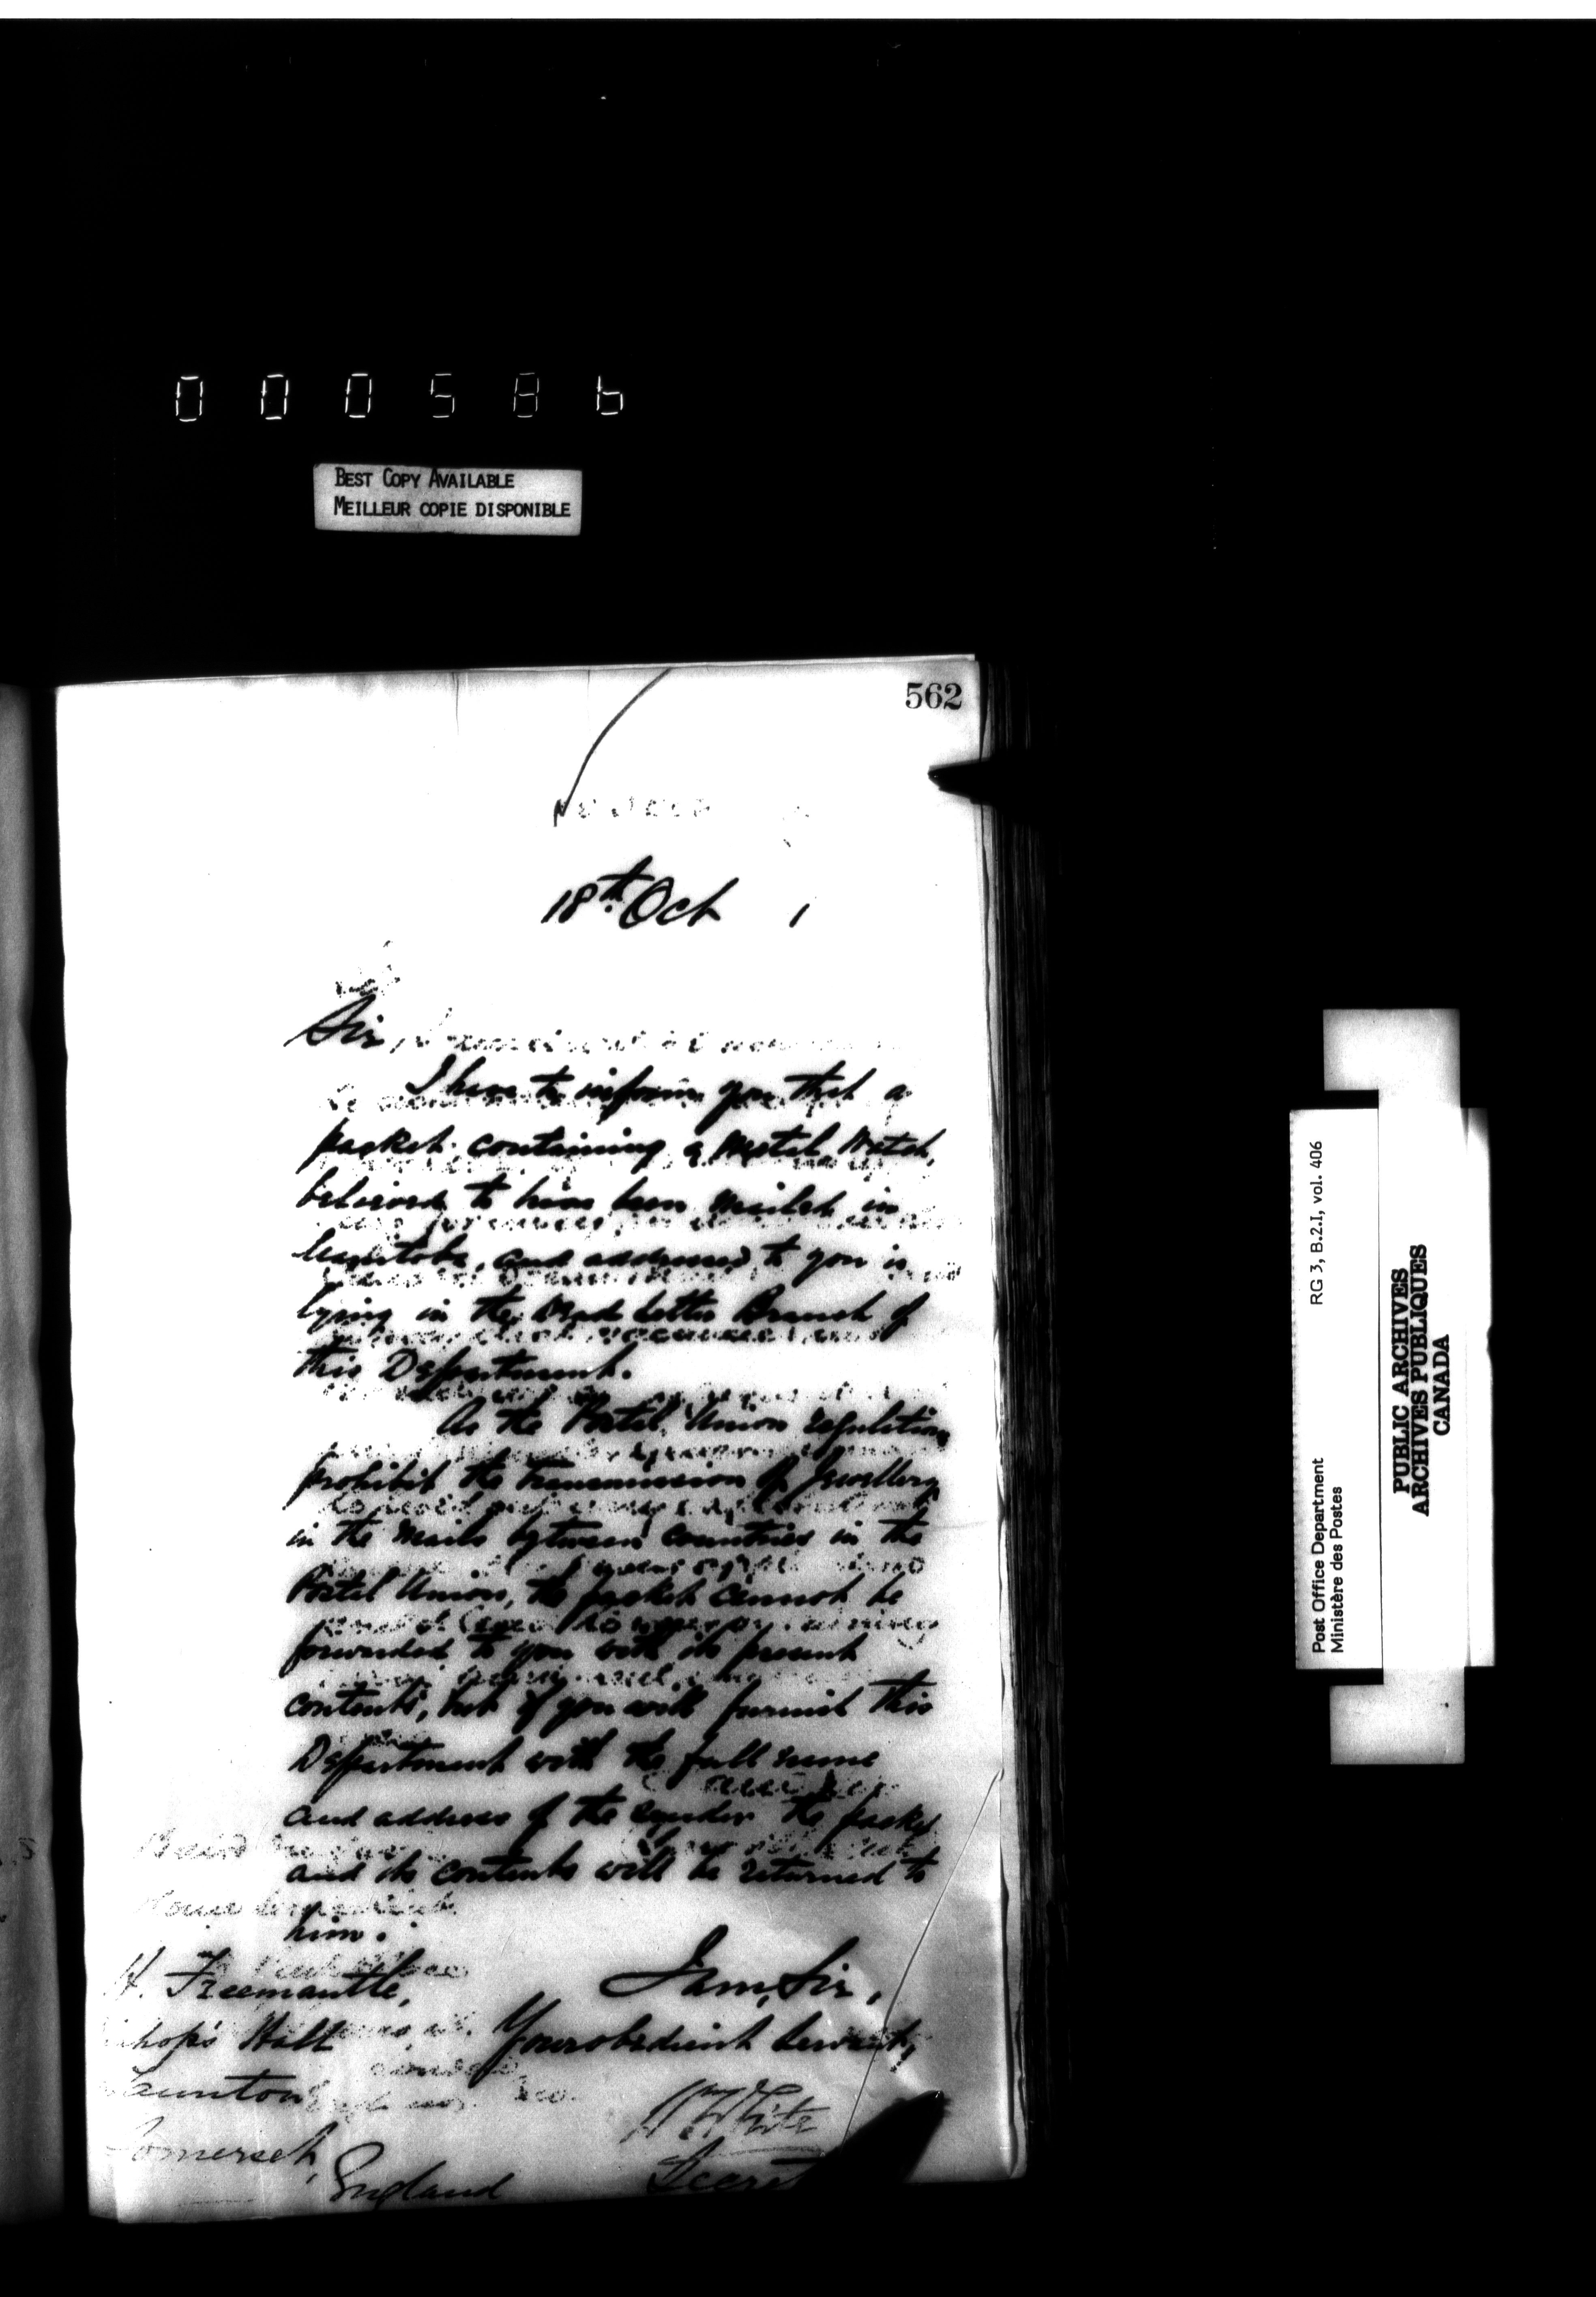 000586
BEST COPY AVAILABLE
MEILLEUR COPIE DISPONIBLE
562
18th Oct 1
Sir,
I have to inform you that a
packet containing a Metal Watch,
believed to have been mailed in
Manitoba, and addressed to you is
lying in the Dead Letter Branch of
this Department.
As the Postal Union regulations
prohibit the transmission of Jewellery
in the Mails between countries in the
Postal Union, the packet cannot be
forwarded to you with its present
contents, but if you will furnish this
Department with the full name
and address of the sender the packet
and its contents will be returned to
him.
H. Freemantle,
Hall
aunton
omerset,
England
I am, Sir,
Your obedient Servant,
Wm White
Secret
Post Office Department
Ministère des Postes
RG 3, B.2.I, vol. 406
PUBLIC ARCHIVES
ARCHIVES PUBLIQUES
CANADA